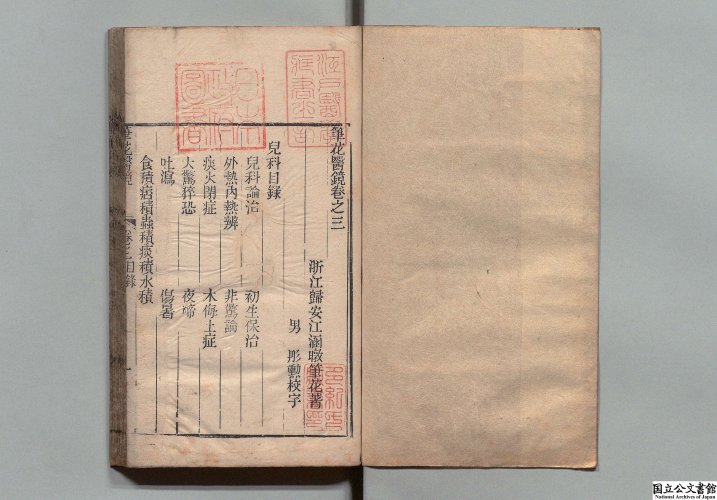 筆花醫鏡卷之三
浙江歸安江涵暾筆花著
男 彤勳校字
兒科目錄
兒科論治 初生保治
外熱內熱辨 非驚論
痰火閉症 木侮土症
大驚猝恐 夜啼
吐瀉 傷暑
食積痞積蟲積痰積水積
筆花醫鏡 卷之三目錄 一
日本政府圖書
江戸醫學
国立公文書館
National Archives of Japan